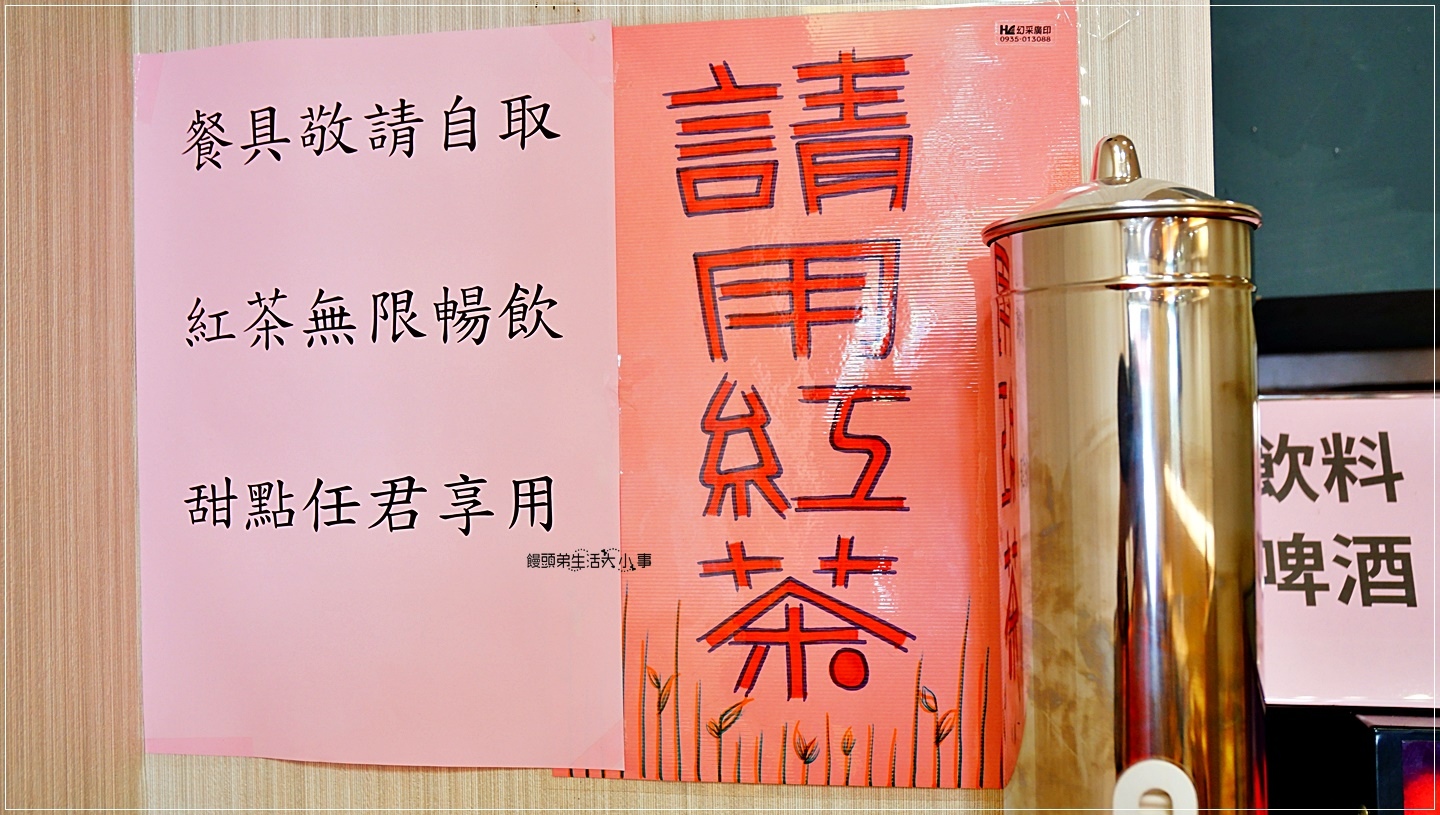 餐具敬請自取
紅茶無限暢飲
甜點任君享用
HC幻采廣印
0935-013088
請用紅茶
饅頭弟生活大小事
飲料
啤酒